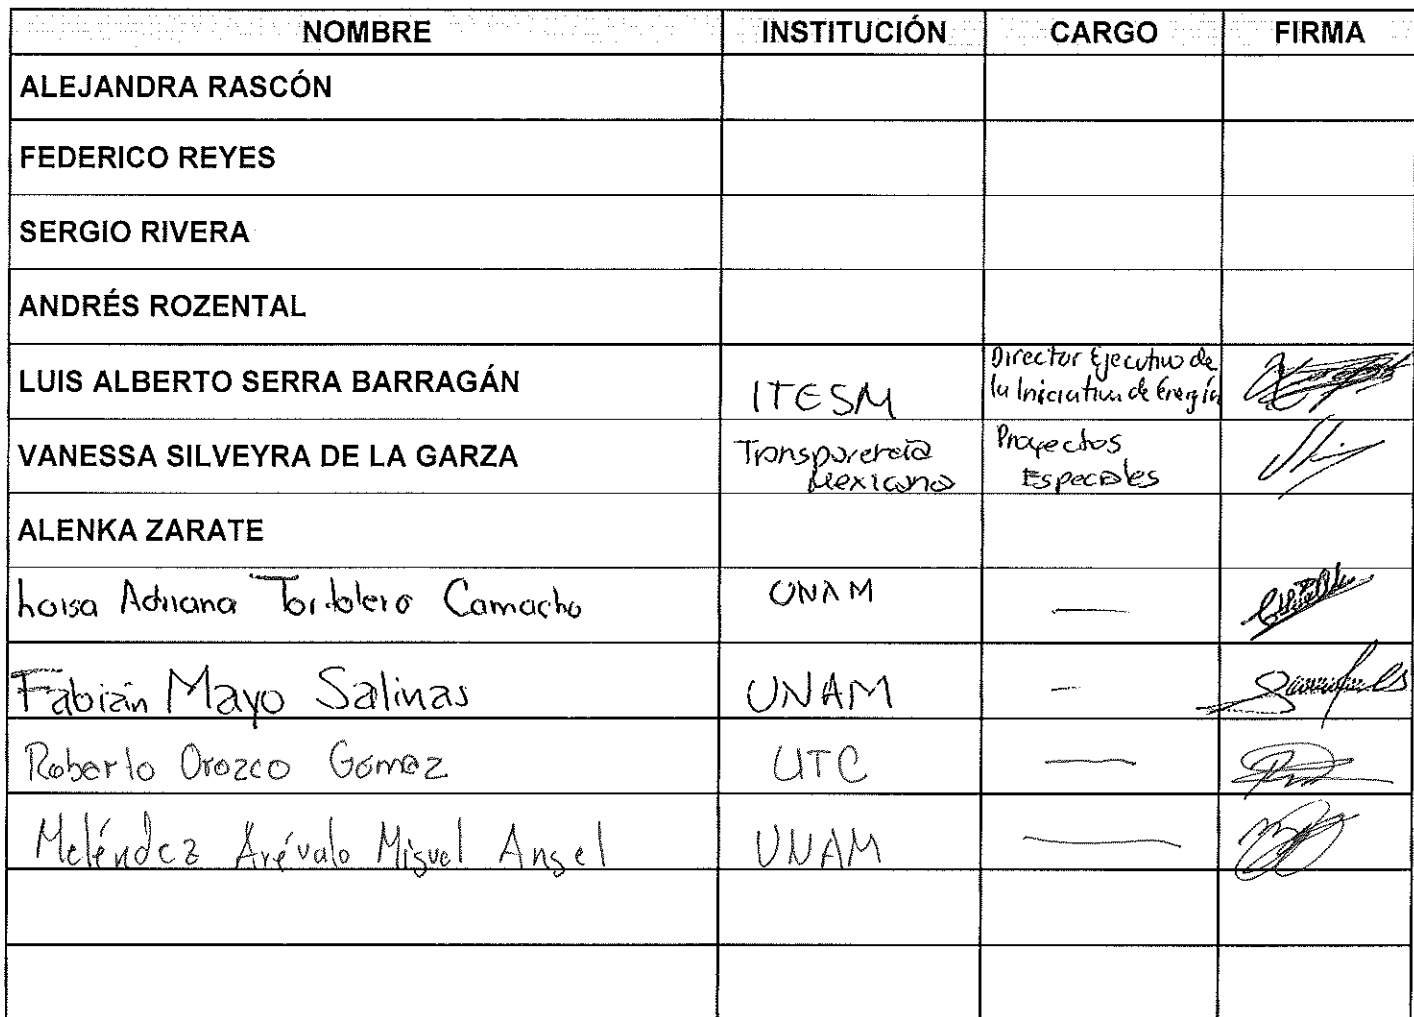 NOMBRE INSTITUCIÓN CARGO FIRMA
ALEJANDRA RASCÓN
FEDERICO REYES
SERGIO RIVERA
ANDRÉS ROZENTAL
LUIS ALBERTO SERRA BARRAGÁN ITESM Director Ejecutivo de
la Iniciativa de Energía
VANESSA SILVEYRA DE LA GARZA Transparencia Proyectos
Mexicana Especiales
ALENKA ZARATE
Adriana Tordolero Camacho UNAM —
Fabián Mayo Salinas UNAM —
Roberto Orozco Gómez UTC —
Meléndez Arévalo Miguel Angel UNAM —